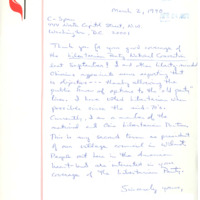 March 2, 1990
C-Span
400 North Capitol Street, N.W.
Washington, D.C. 20001
Thank you for your coverage of
the Libertarian Party National Convention
last September! I and other liberty-minded
Ohioans appreciate
thereby allowing the
public know of options to the "old party"
lines. I have voted Libertarian when
possible since the mid 70's.
Currently, I am a member of the
national and Ohio Libertarian Parties.
This is my second term as president
of our village council in Wilmot.
People out here in the American
heartland are interested in your
coverage of the Libertarian Party.
Sincerely yours,